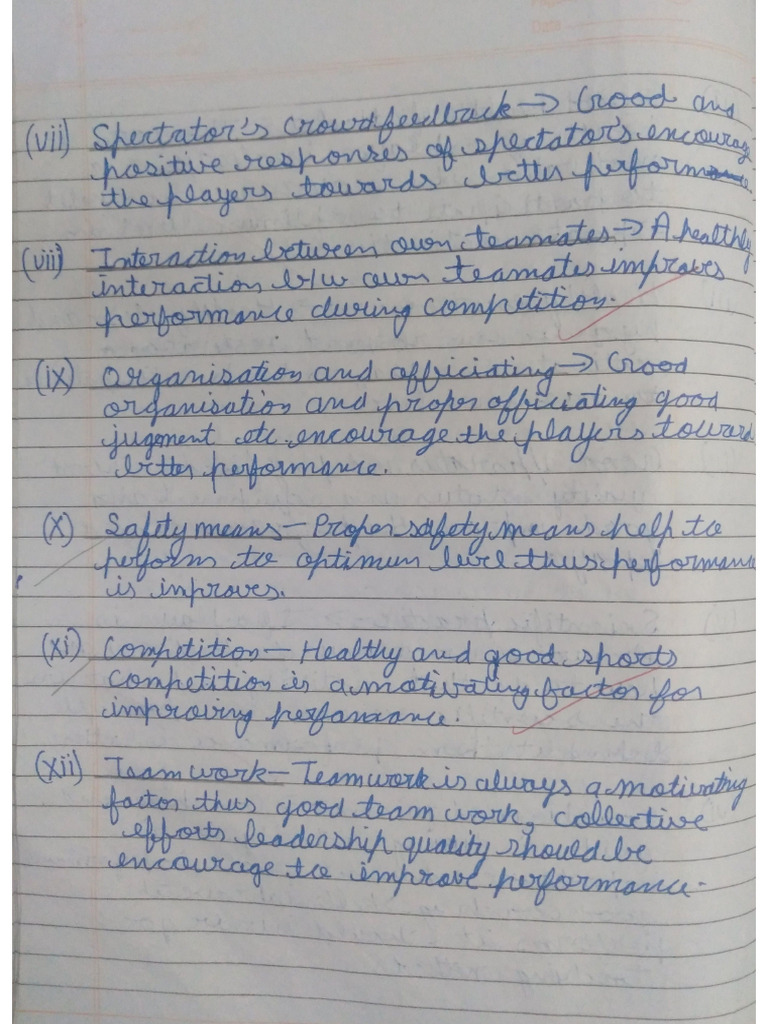 (vii) Spectator's Crowd feedback → Good and
positive responses of spectator's encourage
the players towards better performance
(viii) Interaction between own teamates → A healthly
interaction b/w own teamates improves
performance during competition.
(ix) Organisation and officiating → Good
organisation and proper officiating good
jugment etc. encourage the players toward
better performance.
(x) Safety means - Proper safety means help to
perform to optimum level thus performance
is improves.
(xi) Competition - Healthy and good sports
competition is a motivating factor for
improving perfamance.
(xii) Team work - Teamwork is always a motivating
factor thus good team work, collective
efforts leadership quality should be
encourage to improve performance.